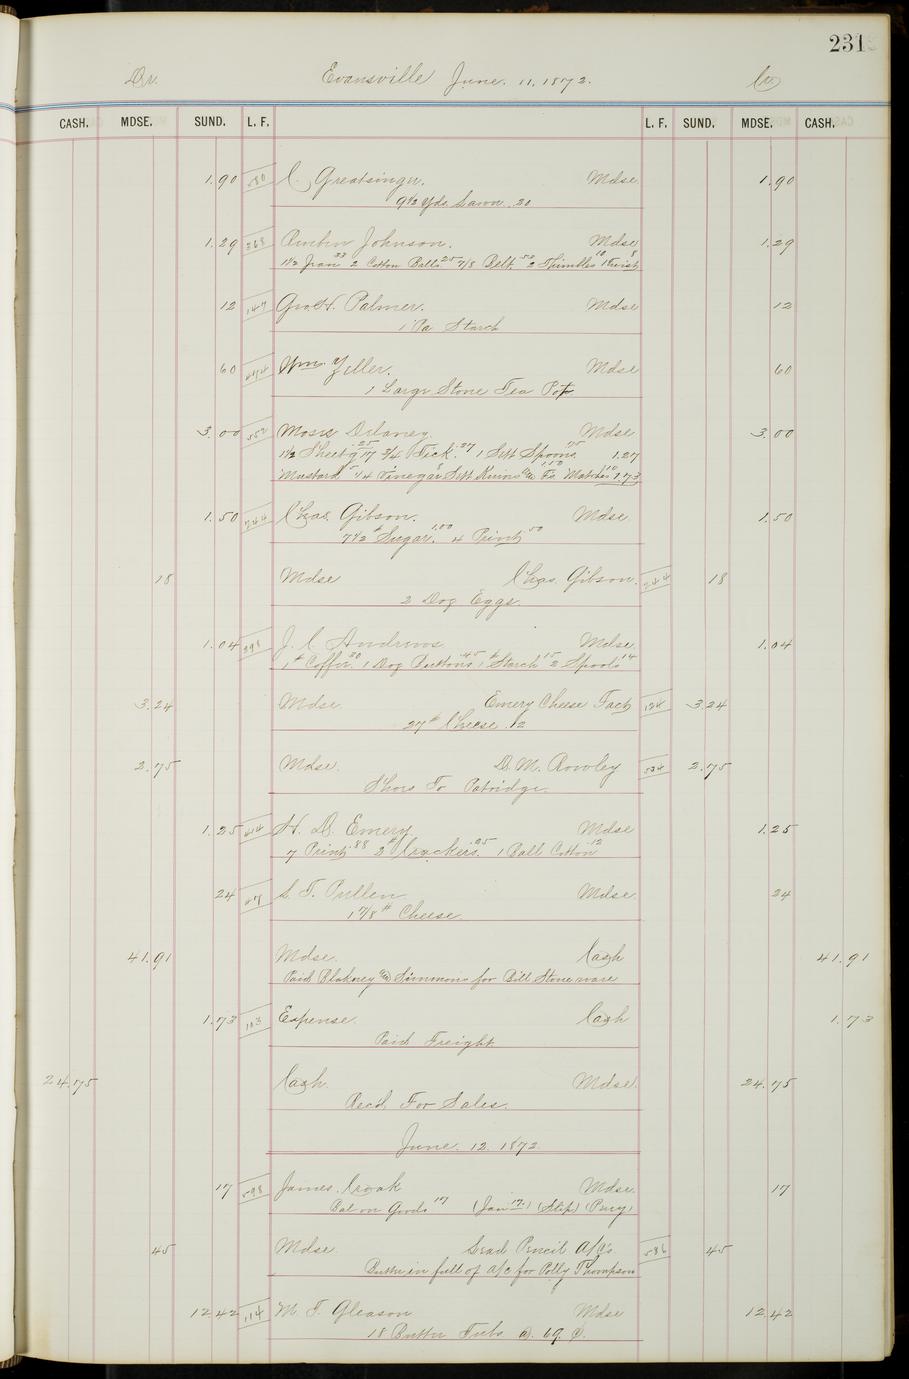 231
Dr. Evansville June. 11, 1872. Cr
CASH. MDSE. SUND. L. F. L. F. SUND. MDSE. CASH.
1.90 580 C. Greatsinger. Mdse 1.90
9 1/2 Yds Lawn .20
1.29 368 Reuben Johnson. Mdse 1.29
1 1/2 Jean 33 2 Cotton Balls 25 7/8 Belt 2 Thimbles 10 1 Twist 8
12 147 Geo. H. Palmer. Mdse 12
1 Pa Starch
60 Wm. Zeller. Mdse 60
1 Large Stone Tea Pot
3.00 552 Moses Delaney Mdse. 3.00
1 1/2 Sheetg .25 3/4 Tick. .27 1 Sett Spoons. .75 1.27
Mustard 5 1/4 Vinegar 8 Sett Knives & Fs. 1.50 Matches 10 1.73
1.50 244 Chas. Gibson. Mdse. 1.50
7 1/2 # Sugar. 1.00 4 Print 50
18 Mdse Chas. Gibson. 244 18
2 Doz Eggs.
1.04 398 J. C. Andrews Mdse. 1.04
1 # Coffee. 30 1 Doz Buttons .45 1 # Starch 15 2 Spools 14
3.24 Mdse. Emery Cheese Fact 124 3.24
27 # Cheese .12
2.75 Mdse. D. M. Rowley 534 2.75
Shoes To Patridge.
1.25 414 H. D. Emery Mdse 1.25
7 Print .88 2 # Crackers. .25 1 Ball Cotton .12
24 47 S. T. Pullen Mdse. 24
1 7/8 # Cheese.
41.91 Mdse. Cash 41.91
Paid Blakney & Simmons for Bill Stone ware
1.73 103 Expense. Cash 1.73
Paid Freight
24.75 Cash. Mdse. 24.75
Rec'd For Sales.
June. 12. 1872.
17 598 James. Croak Mdse. 17
Bal on Goods 17 (Jan 17.) (Step) (Percy)
45 Mdse. Lead Pencil A/C's. 586 45
Butter in full of a/c for Polly Thompson
12.42 114 M. T. Gleason Mdse 12.42
18 Butter Tubs @ .69 ¢.